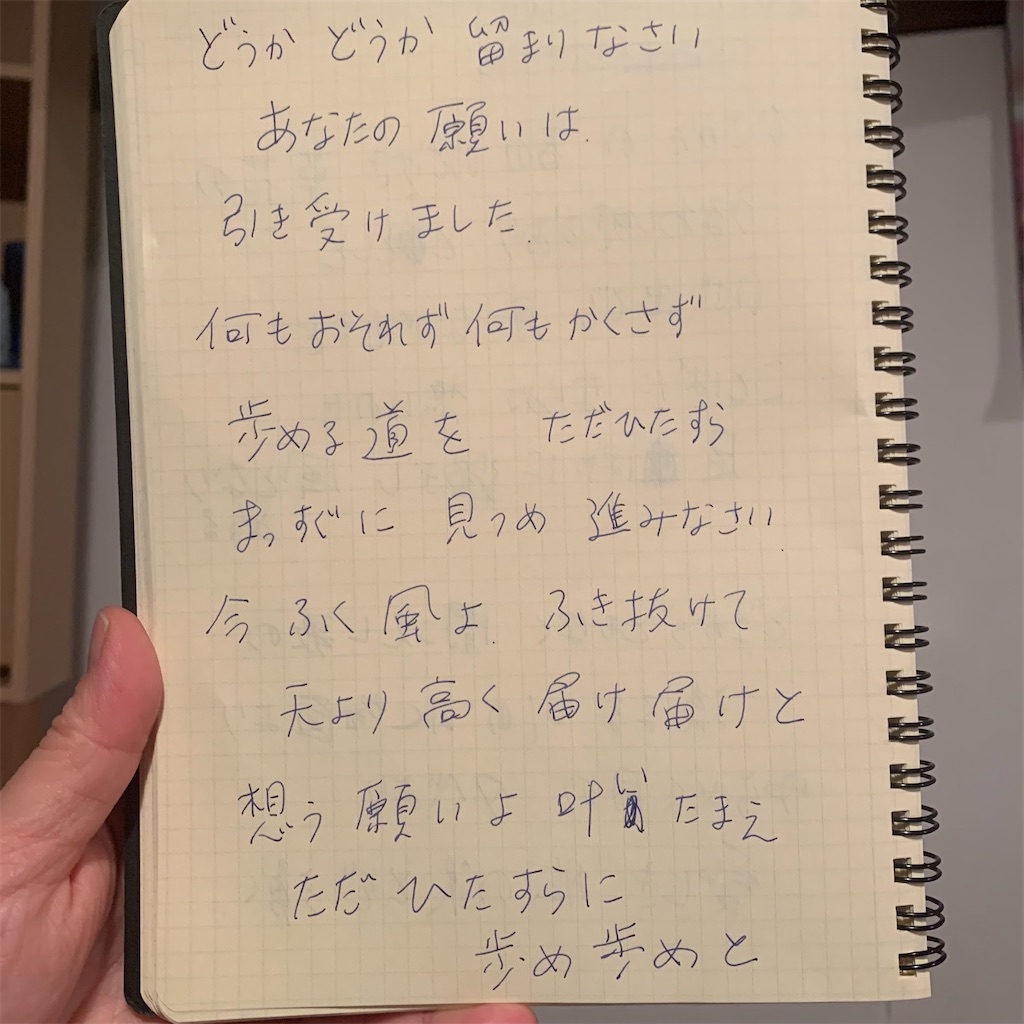 どうか どうか 留まりなさい
あなたの 願いは.
引き受けました.
何もおそれず 何もかくさず
歩める道を ただひたすら
まっすぐに 見つめ 進みなさい.
今 ふく 風よ. ふき抜けて
天より 高く 届け 届けと
想う 願いよ 叶いたまえ
ただ ひたすらに
歩め 歩めと